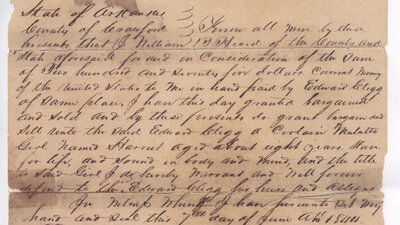 State of Arkansas
County of Crawford Know all men by these
presents that I William B Heard of the County and
State aforesaid for and in Consideration of the Sum
of Five hundred and Seventy five dollars Current Money
of the United States to Me in hand paid by Edward Clegg
of Same place, I have this day granted bargained
and Sold and by these presents do grant bargain and
Sell unto the Said Edward Clegg a Certain Mulatto
Girl Named Harriet aged about eight years Slave
for life, and Sound in body and Mind, and the title
to Said Girl I do hereby Warrant and Will forever
defend to Edward Clegg his heirs and Assigns
In Witness I have hereunto Set My
hand and Seal this 7th day of June AD 1840